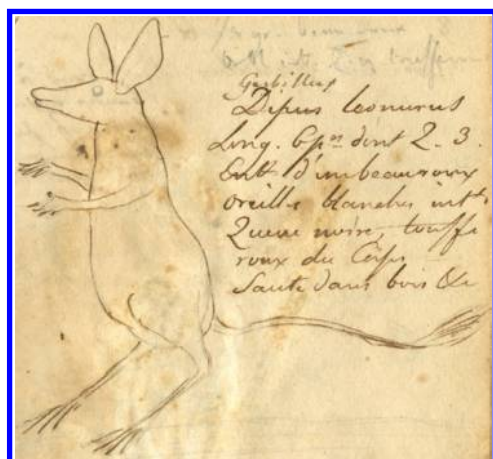 Gerbillus
Dipus leonurus
Long. 6 pes 2. 3.
Entt d'un beau roux
oreilles blanches intt
Queue noire, touffe
roux du Corps
Saute dans bois &c